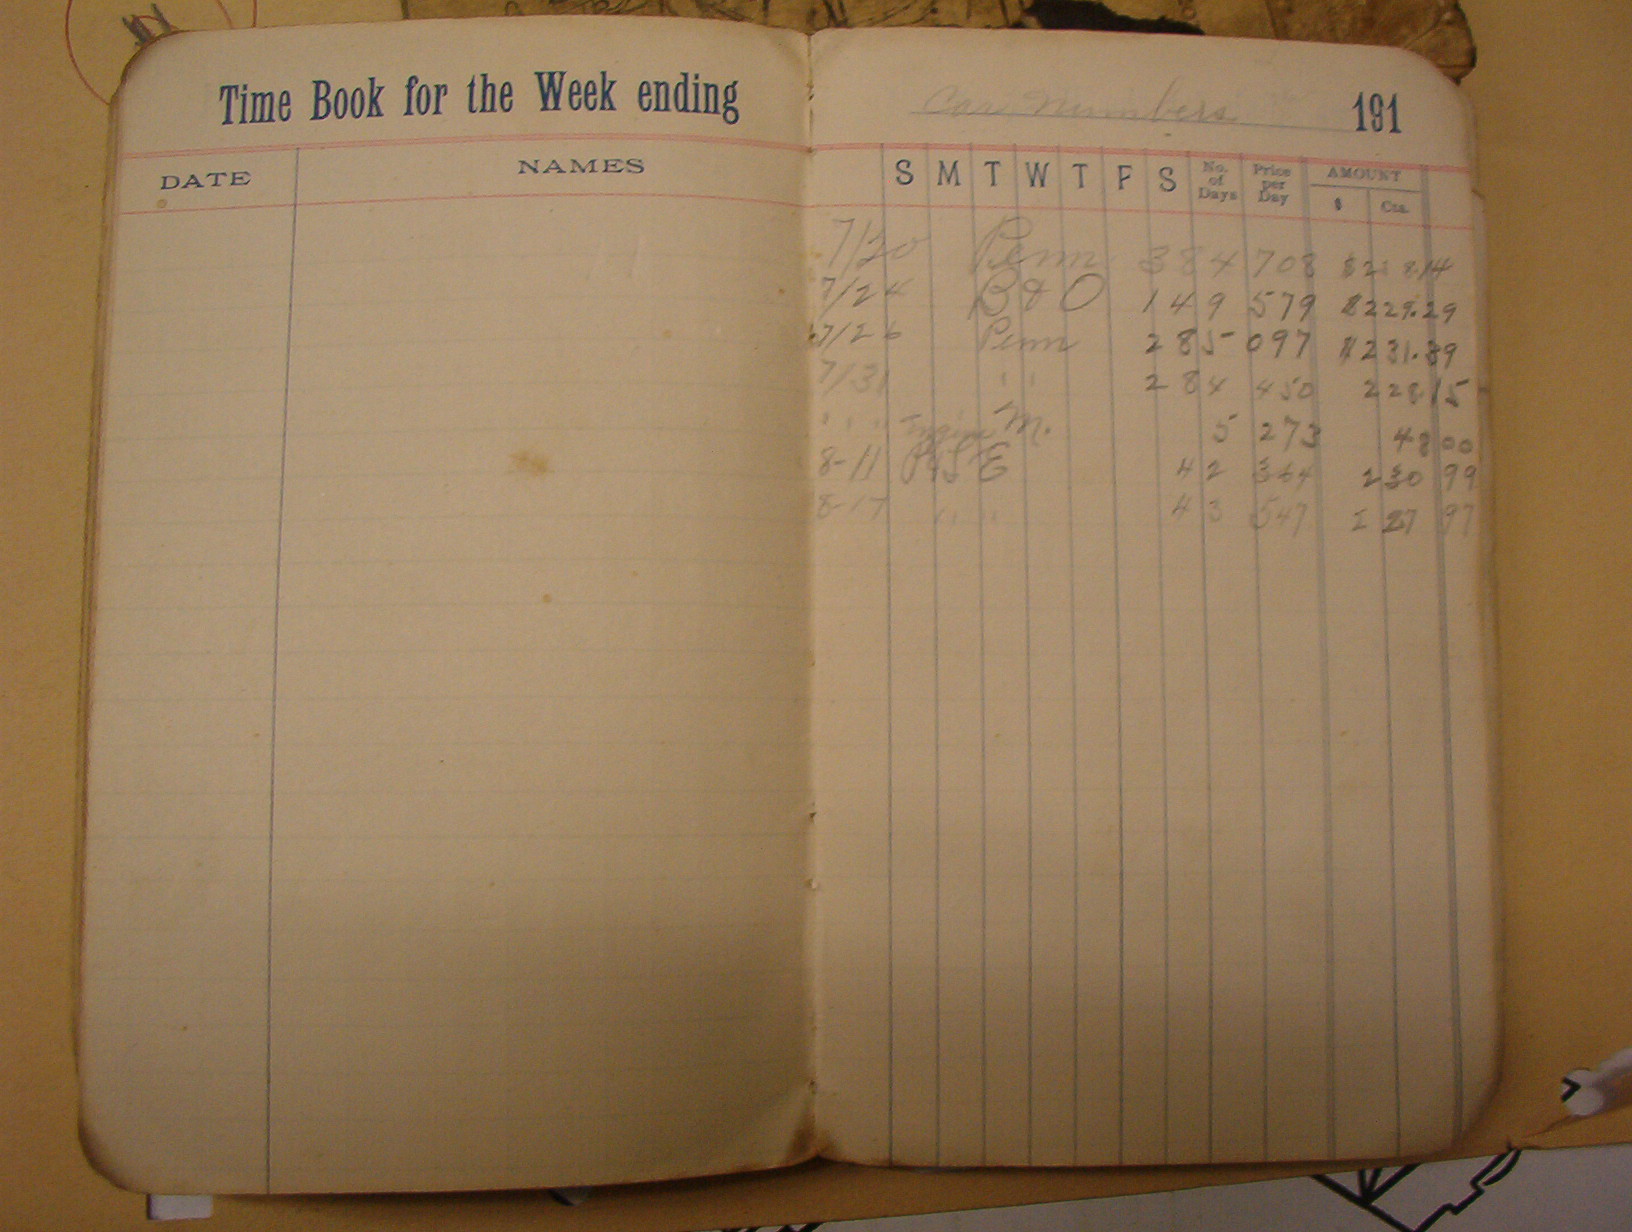 Time Book for the Week ending
DATE NAMES
Car Numbers 191
S M T W T F S No. of Days Price per Day AMOUNT $ Cts.
7/20 Penn 384 708 $218.14
7/24 B & O 149 579 $229.29
7/26 Penn 285 097 $231.39
7/31 " " 284 450 228 15
" " " M. 5 273 48 00
8-11 P&LE 42 364 230 99
8-17 " " 43 547 227 97